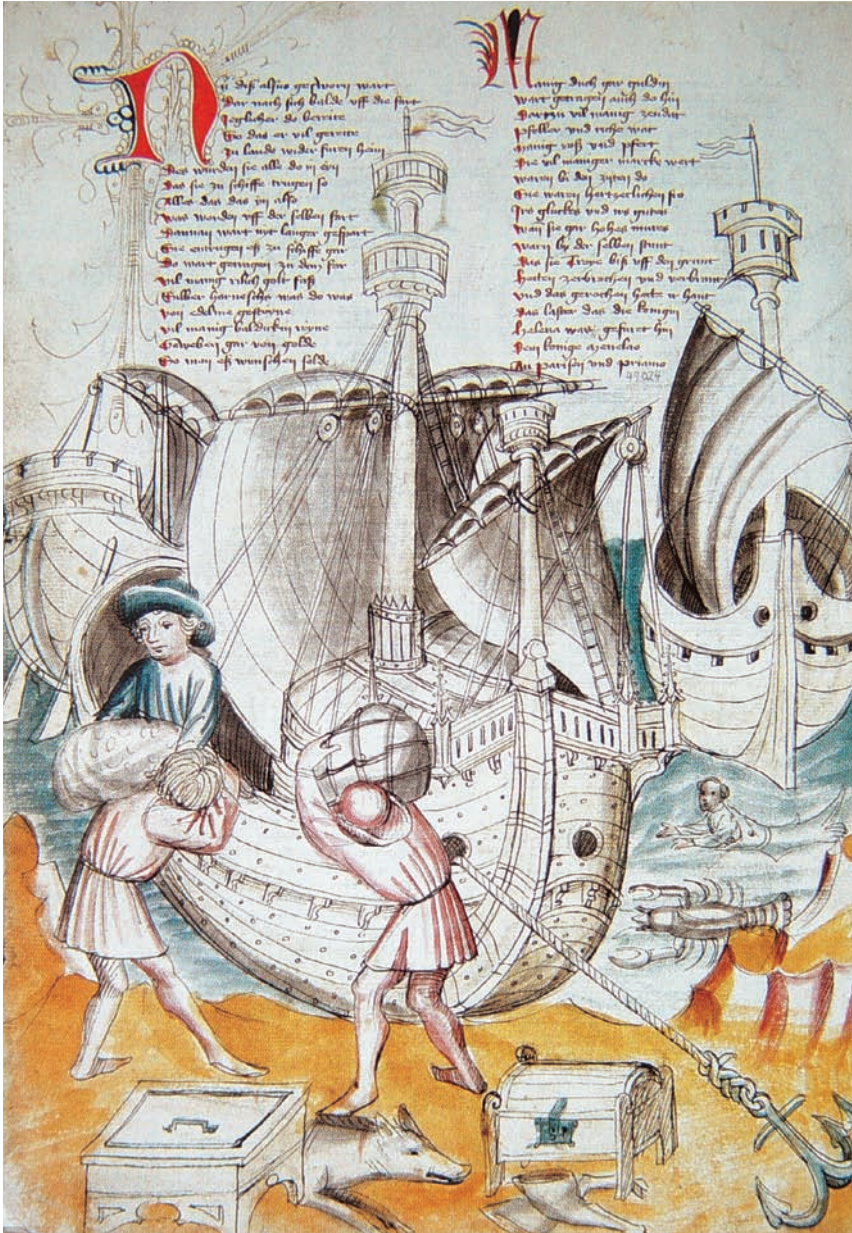 Nu diß alsus gesworn wart
Dar nach sich balde uff die fart
Jeglicher do bereite
So das er vil gereite
Zu lande wider furen heim
Des wurden sie alle do in ein
das sie zu schiffe trugen so
Alles das das in also
was worden uff der selben fart
Dannan wart nit langer gespart
Sie entrugen eß zu schiffe gar
Do wart getragen zu dem far
vil manig rilich golt faß
Silber harnesch was do was
von edelme gesteyne
vil manig baldekin
Geweben gar von golde
So man eß wunschen solde
Manig duch gar guldin
wart getragen auch do hin
Dartzu vil manig zendat
pfeller und riche wat
manig roß und pfert
Die vil maniger marcke wert
waren bi den ziten do
Sie waren hertzeclichen fro
Irs gluckes und irs gutes
wan sie gar hohes mutes
warn by der selben stunt
Das sie Troye biß uff den grunt
hatten zerbrochen und verbrant
und das gerochen hatte ir hant
das laster das die konigin
Helena was gefuret hin
Dem konige Menelao
An parisen und priamo
49024